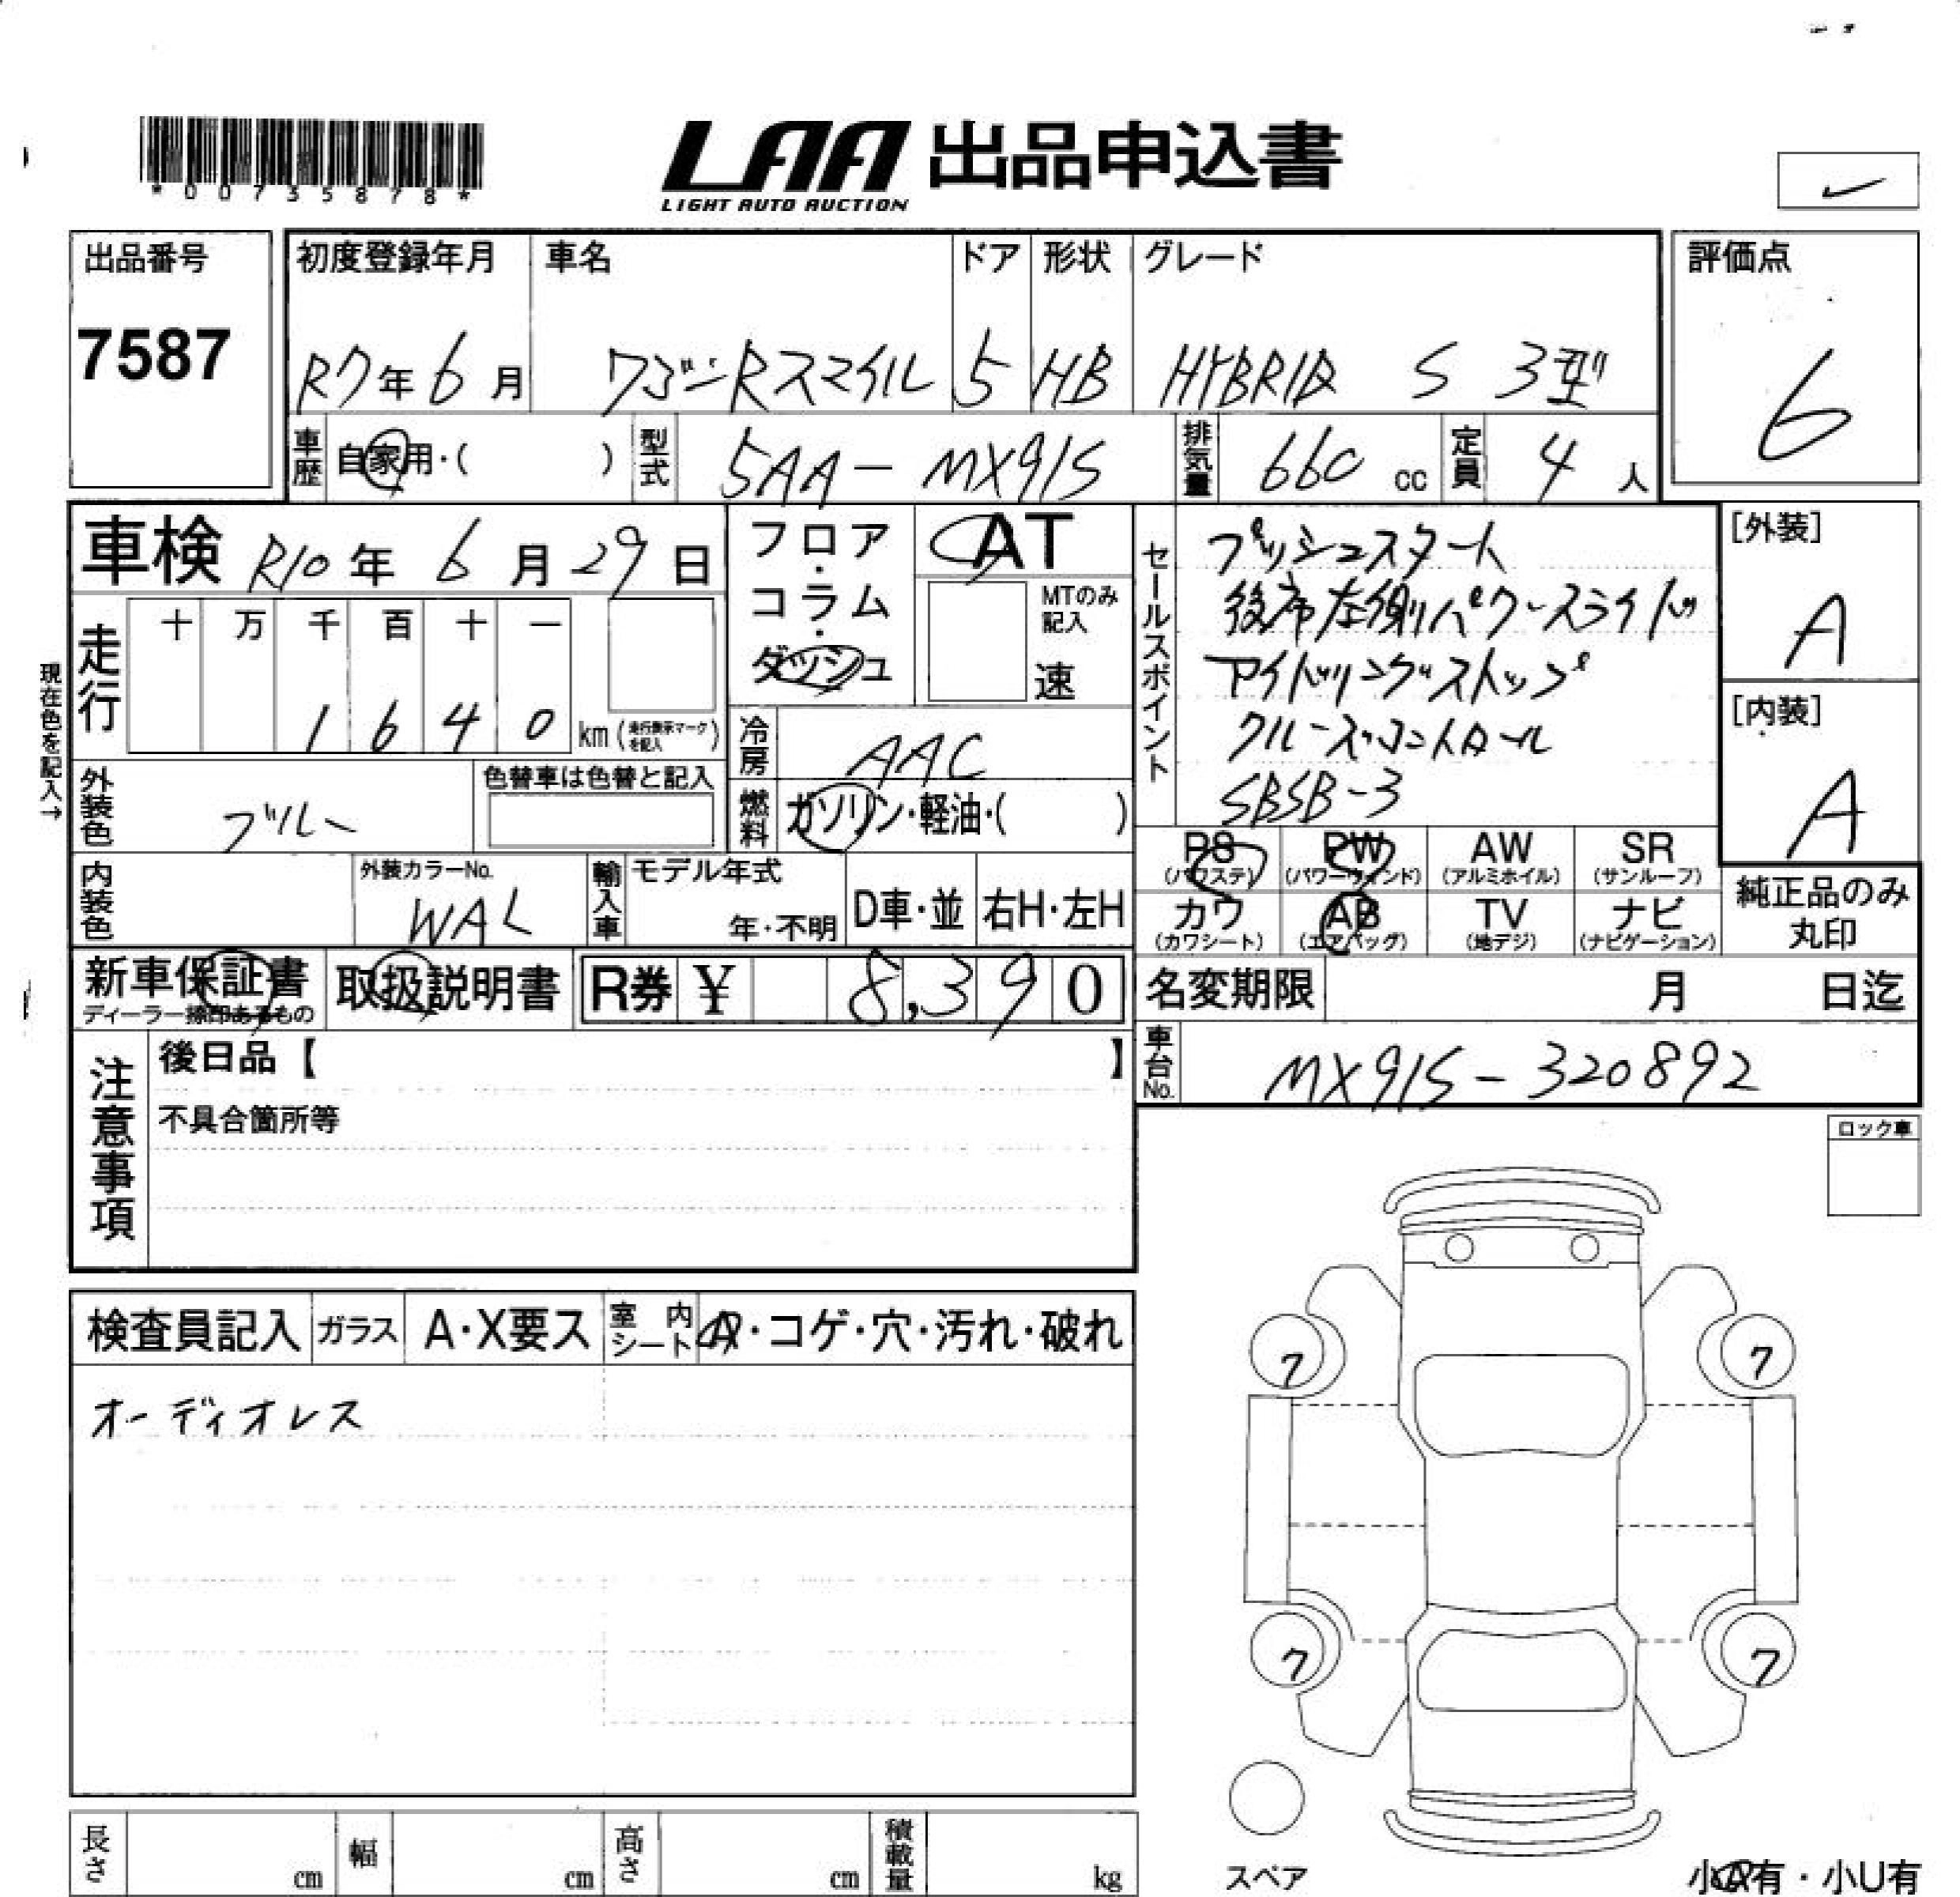 *00735878*
LAA 出品申込書
LIGHT AUTO AUCTION
出品番号
7587
初度登録年月
R7年6月
車名
ワゴンRスマイル
ドア
5
形状
HB
グレード
HYBRID S 3型
評価点
6
車歴 自家用・( )
型式 5AA-MX91S
排気量 660 cc
定員 4 人
車検 R10年6月29日
フロア・コラム・ダッシュ
AT
MTのみ記入
速
セールスポイント
プッシュスタート
後席左側パワースライド
アイドリングストップ
クルーズコントロール
SBSB-3
[外装]
A
[内装]
A
現在色を記入→
走行
十 万 千 百 十 一
1 6 4 0 km (走行表示マークを記入)
冷房 AAC
外装色 ブルー
色替車は色替と記入
燃料 ガソリン・軽油・( )
内装色
外装カラーNo.
WAL
輸入車
モデル年式
年・不明
D車・並
右H・左H
PS
(パワステ)
PW
(パワーウィンド)
AW
(アルミホイル)
SR
(サンルーフ)
カワ
(カワシート)
AB
(エアバッグ)
TV
(地デジ)
ナビ
(ナビゲーション)
純正品のみ
丸印
新車保証書
ディーラー捺印あるもの
取扱説明書
R券 ¥ 8,390
名変期限 月 日迄
車台No. MX91S-320892
注意事項
後日品【 】
不具合箇所等
ロック車
検査員記入
ガラス A・X要ス
室内シート A・コゲ・穴・汚れ・破れ
オーディオレス
7
7
7
7
スペア
長さ cm
幅 cm
高さ cm
積載量 kg
小A有・小U有